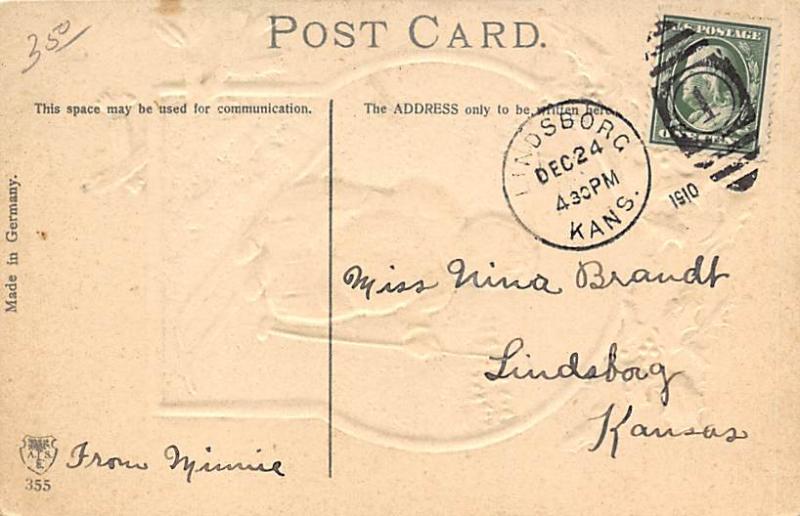 3 50
POST CARD.
U.S. POSTAGE
This space may be used for communication.
The ADDRESS only to be written here.
LINDSBORG
DEC 24
4 30 PM
KANS.
1910
Made in Germany.
Miss Nina Brandt
Lindsborg
Kansas
From Minnie
355